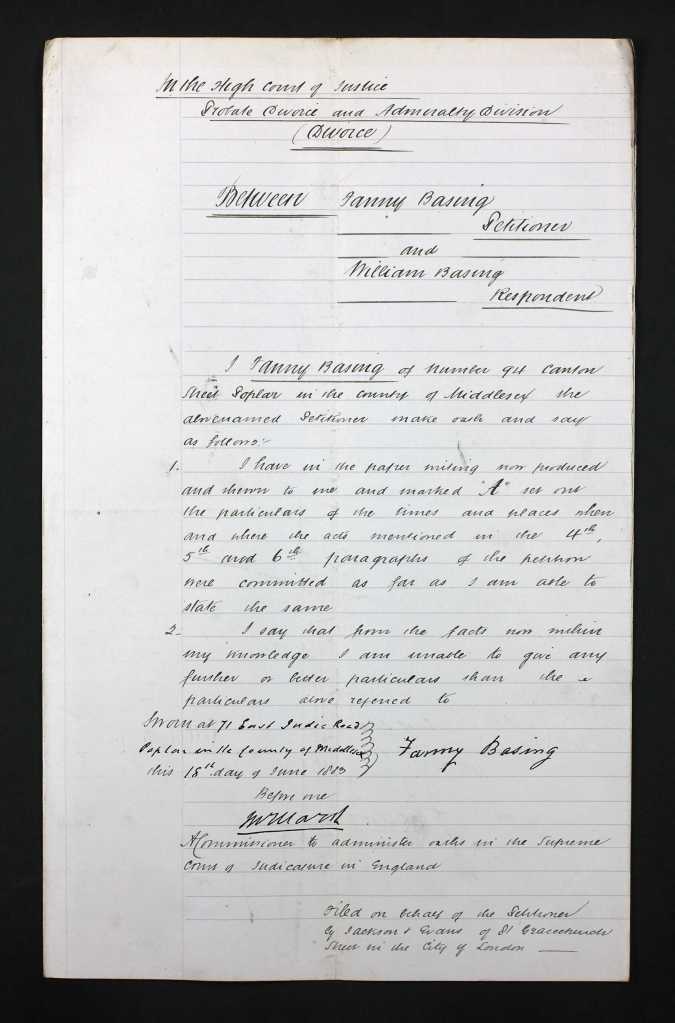 In the High Court of Justice
Probate Divorce and Admiralty Division
(Divorce)
Between Fanny Basing
Petitioner
and
William Basing
Respondent
I Fanny Basing of number 94 Canton
Street Poplar in the county of Middlesex the
abovenamed Petitioner make oath and say
as follows:-
1. I have in the paper writing now produced
and shewn to me and marked "A" set out
the particulars of the times and places when
and where the acts mentioned in the 4th,
5th and 6th paragraphs of the petition
were committed as far as I am able to
state the same
2. I say that from the facts now within
my knowledge I am unable to give any
further or better particulars than the
particulars above referred to
Sworn at 71 East India Road
Poplar in the County of Middlesex
this 18th day of June 1883
Fanny Basing
Before me
A Commissioner to administer oaths in the Supreme
Court of Judicature in England
Filed on behalf of the Petitioner
by Jackson & Evans of Gracechurch
Street in the City of London